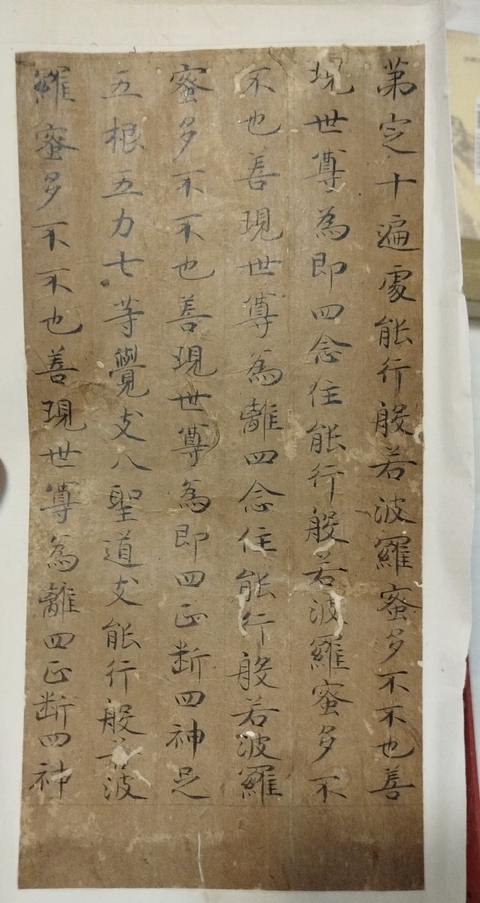 第定十遍處能行般若波羅蜜多不不也善
現世尊為即四念住能行般若波羅蜜多不
不也善現世尊為離四念住能行般若波羅
蜜多不不也善現世尊為即四正断四神足
五根五力七等覺支八聖道支能行般若波
羅蜜多不不也善現世尊為離四正断四神